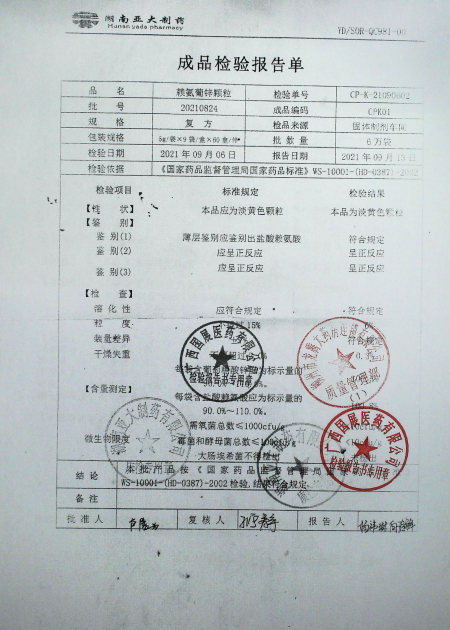 湖南亚大制药
Hunan yada pharmacy
YD/SOR-QC981-00
成品检验报告单
品 名 赖氨葡锌颗粒 检验单号 CP-K-21090602
批 号 20210824 成品编码 CPK01
规 格 复 方 检品来源 固体制剂车间
包装规格 5g/袋×9袋/盒×60盒/件 批 数 量 6万袋
检验日期 2021年09月06日 报告日期 2021年09月13日
检验依据 《国家药品监督管理局国家药品标准》WS-10001-(HD-0387)-2002
检验项目 标准规定 检验结果
【性 状】 本品应为淡黄色颗粒 本品为淡黄色颗粒
【鉴 别】
鉴别(1) 薄层鉴别应鉴别出盐酸赖氨酸 符合规定
鉴别(2) 应呈正反应 呈正反应
鉴别(3) 应呈正反应 呈正反应
【检 查】
溶化性 应符合规定 符合规定
粒 度 15%
装量差异 符合规定
干燥失重
每袋含葡萄糖酸锌应为标示量的
【含量测定】
每袋含盐酸赖氨酸应为标示量的
90.0%~110.0%。
需氧菌总数≤1000cfu/g
微生物限度 霉菌和酵母菌总数≤100cfu/g
大肠埃希菌不得检出
结 论 本批产品按《国家药品监督管理局
WS-10001-(HD-0387)-2002检验,结果符合规定。
备 注
批 准 人 复 核 人 报 告 人
广西国展医药有限公司
检验报告书专用章
质量管理部
(1)
湖南亚大制药有限公司
广西国展医药有限公司
检验报告书专用章